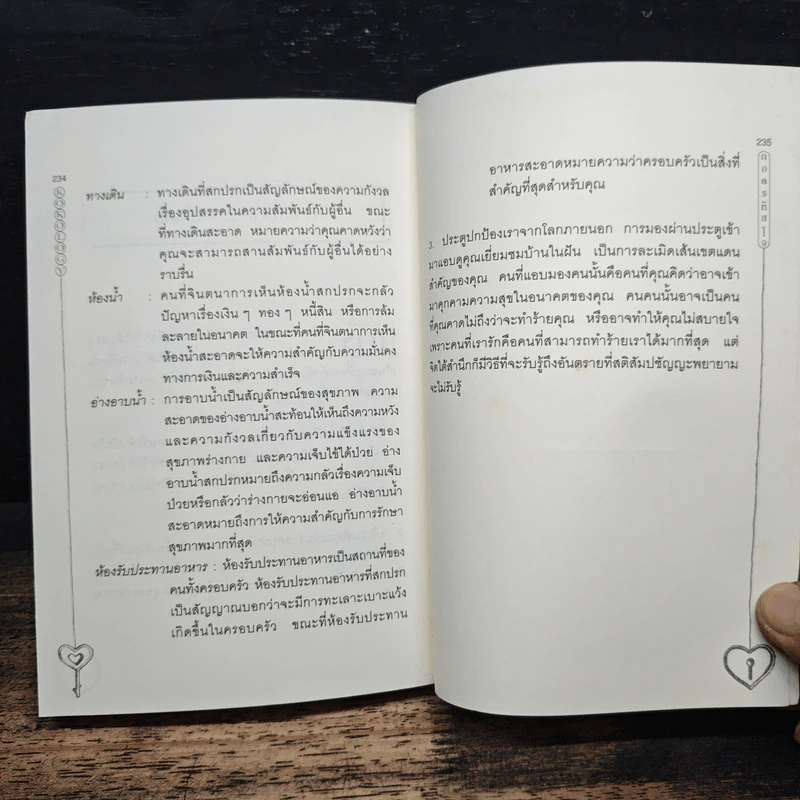 234
KOKOLOGY
ทางเดิน : ทางเดินที่สกปรกเป็นสัญลักษณ์ของความกังวล
เรื่องอุปสรรคในความสัมพันธ์กับผู้อื่น ขณะ
ที่ทางเดินสะอาด หมายความว่าคุณคาดหวังว่า
คุณจะสามารถสานสัมพันธ์กับผู้อื่นได้อย่าง
ราบรื่น
ห้องน้ำ : คนที่จินตนาการเห็นห้องน้ำสกปรกจะกลัว
ปัญหาเรื่องเงิน ๆ ทอง ๆ หนี้สิน หรือการล้ม
ละลายในอนาคต ในขณะที่คนที่จินตนาการเห็น
ห้องน้ำสะอาดจะให้ความสำคัญกับความมั่นคง
ทางการเงินและความสำเร็จ
อ่างอาบน้ำ : การอาบน้ำเป็นสัญลักษณ์ของสุขภาพ ความ
สะอาดของอ่างอาบน้ำสะท้อนให้เห็นถึงความหวัง
และความกังวลเกี่ยวกับความแข็งแรงของ
สุขภาพร่างกาย และความเจ็บไข้ได้ป่วย อ่าง
อาบน้ำสกปรกหมายถึงความกลัวเรื่องความเจ็บ
ป่วยหรือกลัวว่าร่างกายจะอ่อนแอ อ่างอาบน้ำ
สะอาดหมายถึงการให้ความสำคัญกับการรักษา
สุขภาพมากที่สุด
ห้องรับประทานอาหาร : ห้องรับประทานอาหารเป็นสถานที่ของ
คนทั้งครอบครัว ห้องรับประทานอาหารที่สกปรก
เป็นสัญญาณบอกว่าจะมีการทะเลาะเบาะแว้ง
เกิดขึ้นในครอบครัว ขณะที่ห้องรับประทาน
235
ถอดรหัสใจ
อาหารสะอาดหมายความว่าครอบครัวเป็นสิ่งที่
สำคัญที่สุดสำหรับคุณ
3. ประตูปกป้องเราจากโลกภายนอก การมองผ่านประตูเข้า
มาแอบดูคุณเยี่ยมชมบ้านในฝัน เป็นการละเมิดเส้นเขตแดน
สำคัญของคุณ คนที่แอบมองคนนั้นคือคนที่คุณคิดว่าอาจเข้า
มาคุกคามความสุขในอนาคตของคุณ คนคนนั้นอาจเป็นคน
ที่คุณคาดไม่ถึงว่าจะทำร้ายคุณ หรืออาจทำให้คุณไม่สบายใจ
เพราะคนที่เรารักคือคนที่สามารถทำร้ายเราได้มากที่สุด แต่
จิตใต้สำนึกก็มีวิธีที่จะรับรู้ถึงอันตรายที่สติสัมปชัญญะพยายาม
จะไม่รับรู้